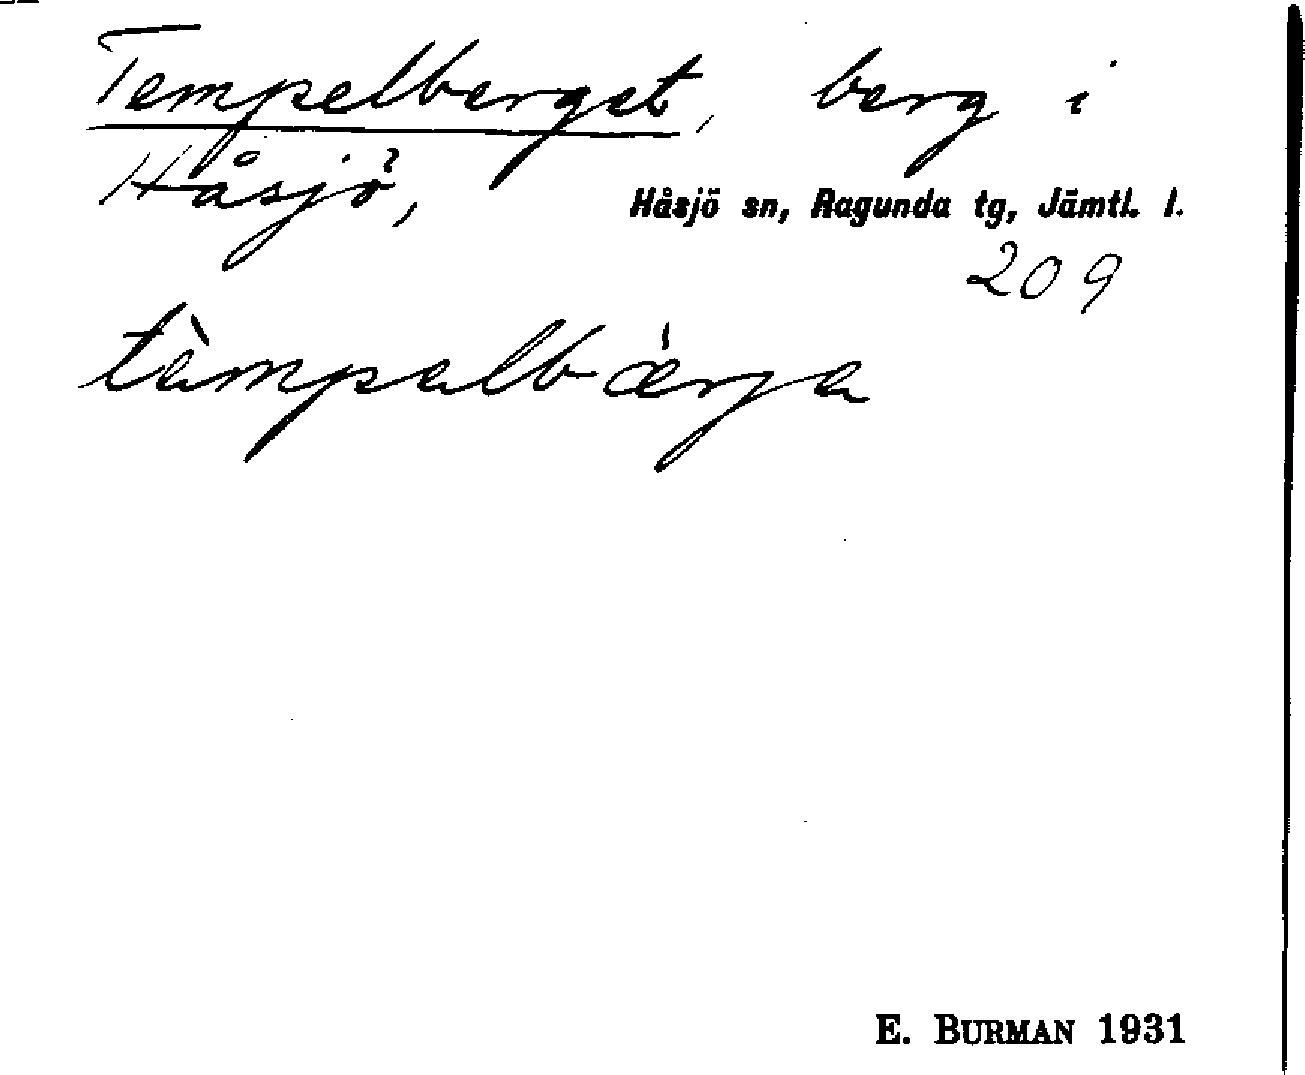 Tempelberget, berg i
Håsjö,
Håsjö sn, Ragunda tg, Jämtl. l.
209
tèmpalbǽrja
E. BURMAN 1931